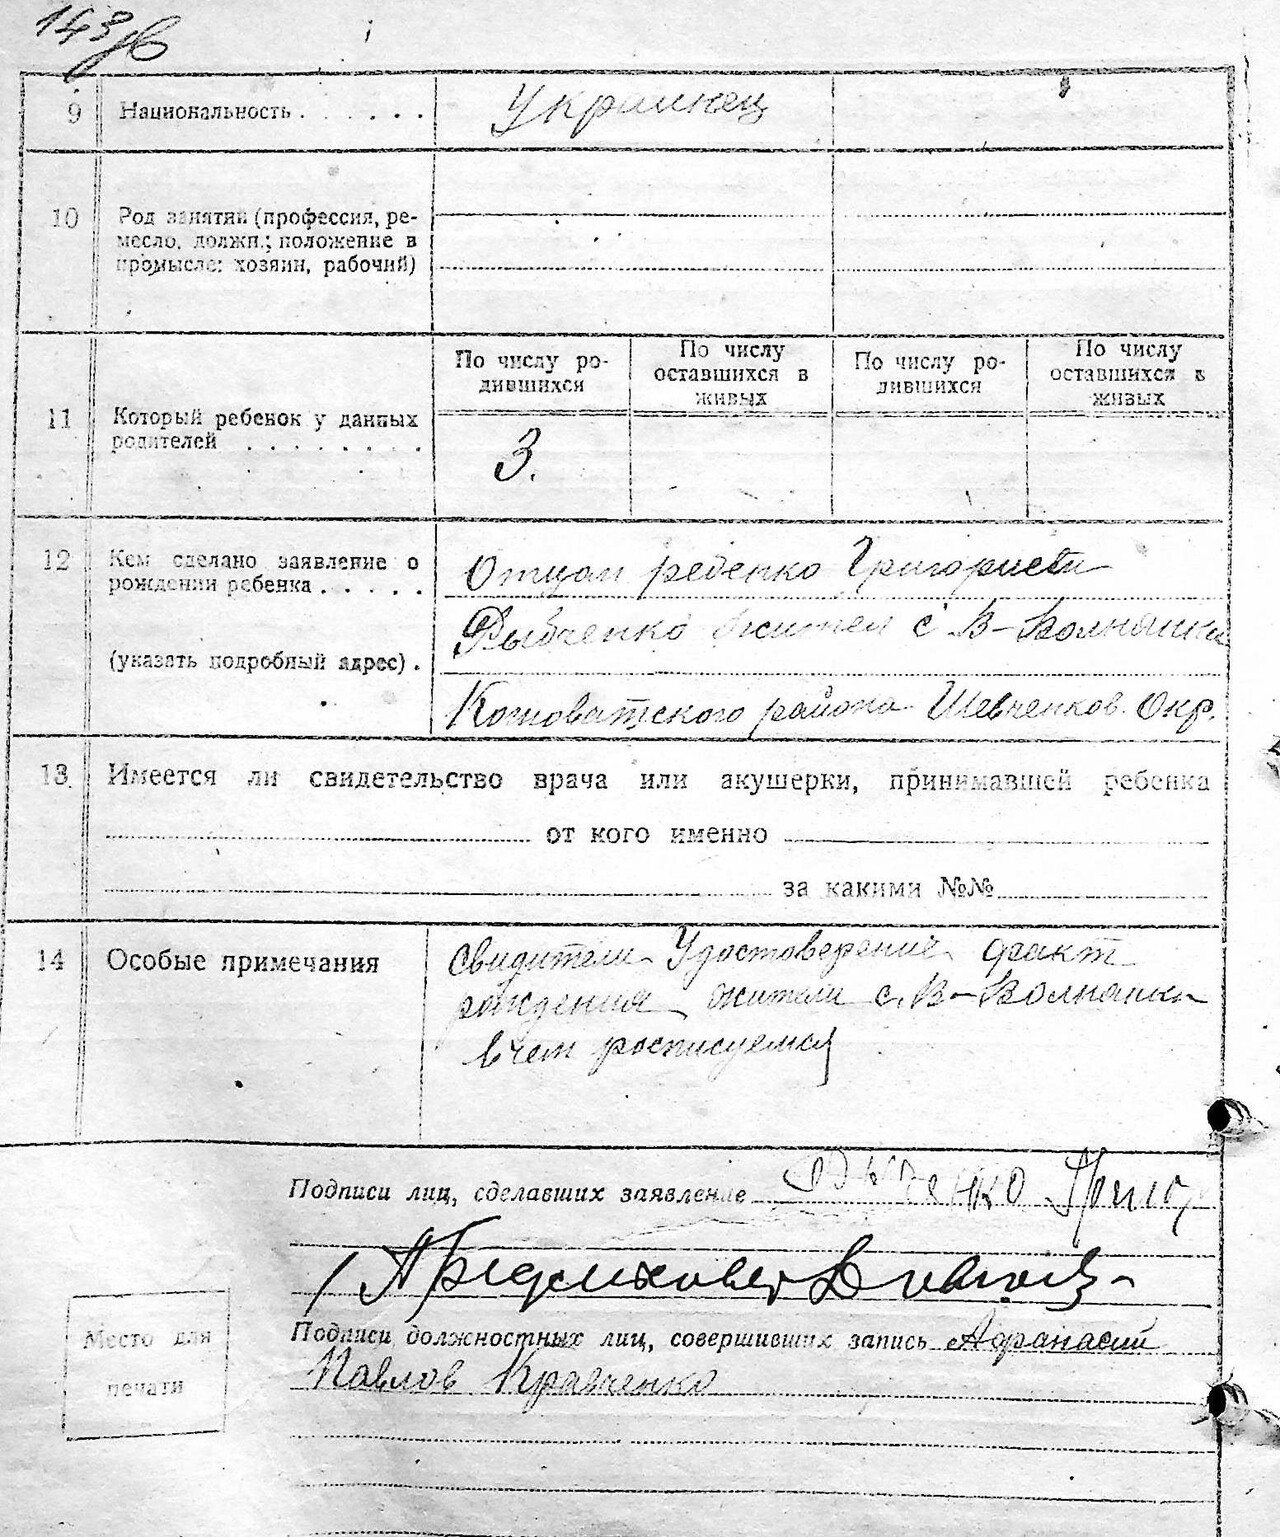 143 зв
9 Национальность . . . . . . Украинец
10 Род занятий (профессия, ре-
месло, должн.; положение в
промысле: хозяин, рабочий)
11 Который ребенок у данных
родителей . . . . . . . .
По числу ро-
дившихся
По числу
оставшихся в
живых
По числу ро-
дившихся
По числу
оставшихся в
живых
3.
12 Кем сделано заявление о
рождении ребенка . . . . .
(указать подробный адрес) .
Отцом ребенко
Рыбченко жител с В-Волнянки
района Шевченков. Окр.
13 Имеется ли свидетельство врача или акушерки, принимавшей ребенка
от кого именно
за какими №№
14 Особые примечания
Свидители Удостоверение факт
рождения жители с. В-Волнянки
в чем росписуемся
Подписи лиц, сделавших заявление
Подписи должностных лиц, совершивших запись Афанасий
Павлов Кравченко
Место для
печати